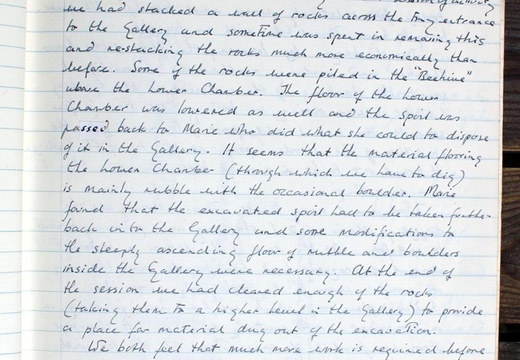 session of activity
we had stacked a wall of rocks across the tiny entrance
to the Gallery and sometime was spent in removing this
and restacking the rocks much more economically than
before. Some of the rocks were piled in the "Beehive"
above the Lower Chamber. The floor of the Lower
Chamber was lowered as well and the spoil was
passed back to Marie who did what she could to dispose
of it in the Gallery. It seems that the material flooring
the Lower Chamber (through which we have to dig)
is mainly rubble with the occasional boulder. Marie
found that the excavated spoil had to be taken further
back into the Gallery and some modifications to
the steeply ascending floor of rubble and boulders
inside the Gallery were necessary. At the end of
the session we had cleared enough of the rocks
(taking them to a higher level in the Gallery) to provide
a place for material dug out of the excavation.
We both feel that much more work is required before